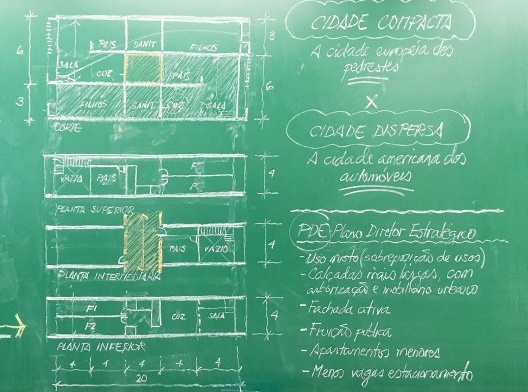 6
3
3
6
PAIS SANIT FILHOS
SALA COZ PAIS
FILHOS SANIT COZ SALA
CORTE
VAZIO PAIS F F
4
PLANTA SUPERIOR
PAIS VAZIO
4
PLANTA INTERMEDIÁRIA
F1 COZ SALA
F2
4
PLANTA INFERIOR
4 4 4 4 4
20
CIDADE COMPACTA
A cidade europeia dos
pedrestes
X
CIDADE DISPERSA
A cidade americana dos
automóveis
PDE Plano Diretor Estratégico
- Uso misto (sobreposição de usos)
- Calçadas mais largas, com
arborização e mobiliário urbano
- Fachada ativa
- Fruição pública
- Apartamentos menores
- Menos vagas estacionamento